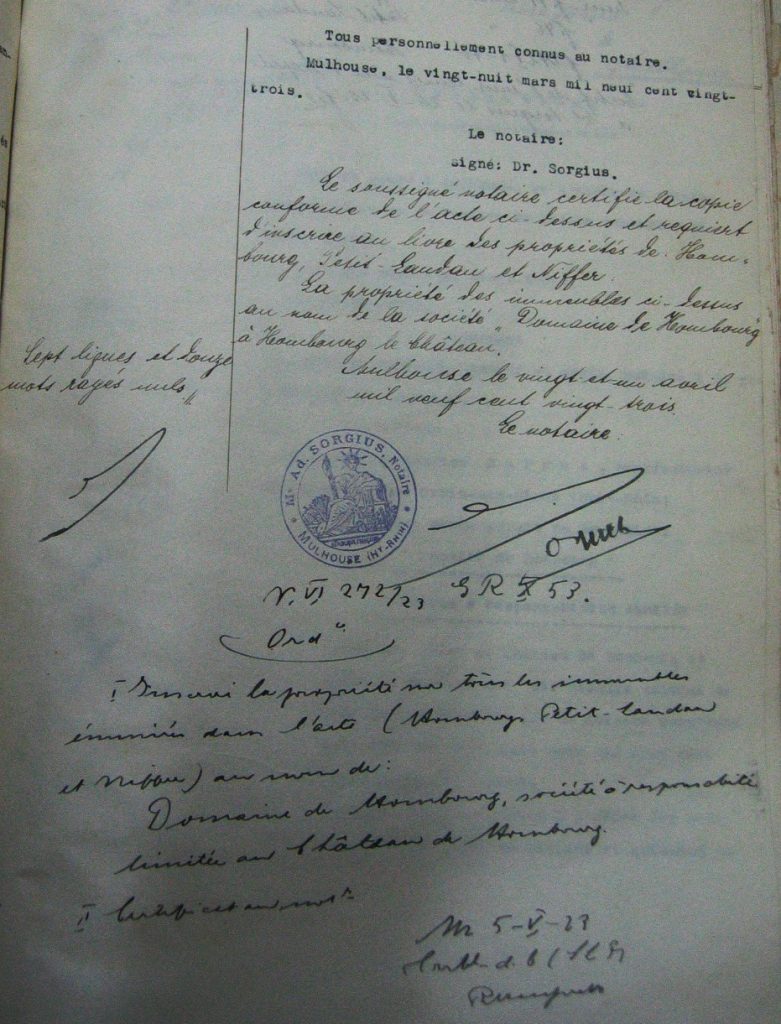 Tous personnellement connus au notaire.
Mulhouse, le vingt-nuit mars mil neuf cent vingt-
trois.
Le notaire:
signé: Dr. Sorgius.
Le soussigné notaire certifie la copie
conforme de l'acte ci-dessus et requiert
d'inscrire au livre des propriétés de Hom-
bourg, Petit-Landau et Niffer.
La propriété des immeubles ci-dessus
au nom de la société "Domaine de Hombourg"
à Hombourg le Château.
Sept lignes et douze
mots rayés nuls
Mulhouse le vingt et un avril
mil neuf cent vingt-trois.
Le notaire:
Me Ad. SORGIUS, Notaire
MULHOUSE (HT-RHIN)
N. VI 272/23 GR X 53.
Ord
I Inscrire la propriété sur tous les immeubles
énumérés dans l'acte (Hombourg Petit-Landau
et Niffer) au nom de:
Domaine de Hombourg, société à responsabilité
limitée au Château de Hombourg.
II Certificat aux
5-V-23